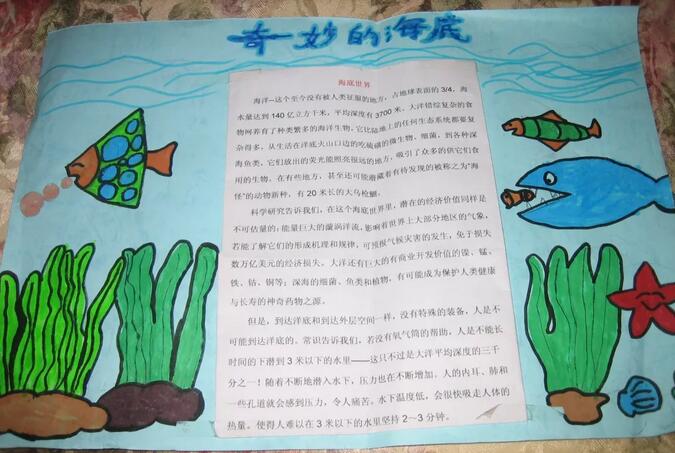 奇妙的海底
海底世界
海洋–这个至今没有被人类征服的地方，占地球表面的 3/4，海
水量达到 140 亿立方千米，平均深度有 3700 米，大洋错综复杂的食
物网养育了种类繁多的海洋生物，它比陆地上的任何生态系统都要复
杂得多，从生活在洋底火山口边的吃硫磺的微生物、细菌，到各种深
海鱼类，它们放出的荧光能照亮很远的地方，吸引了众多的供它们食
用的生物，在有些地方，甚至还可能潜藏着有待发现的被称之为“海
怪”的动物新种，有 20 米长的大乌枪鲗。
科学研究告诉我们，在这个海底世界里，潜在的经济价值同样是
不可估量的：能量巨大的漩涡洋流，影响着世界上大部分地区的气象，
若能了解它们的形成机理和规律，可预报气候灾害的发生，免于损失
数万亿美元的经济损失。大洋还有巨大的有商业开发价值的镍、锰、
铁、钴、铜等；深海的细菌、鱼类和植物，有可能成为保护人类健康
与长寿的神奇药物之源。
但是，到达洋底和到达外层空间一样，没有特殊的装备，人是不
可能到达洋底的。常识告诉我们，若没有氧气筒的帮助，人是不能长
时间的下潜到 3 米以下的水里——这只不过是大洋平均深度的三千
分之一！随着不断地潜入水下，压力也在不断增加。人的内耳、肺和
一些孔道就会感到压力，令人痛苦。水下温度低，会很快吸走人体的
热量。使得人难以在 3 米以下的水里坚持 2～3 分钟。